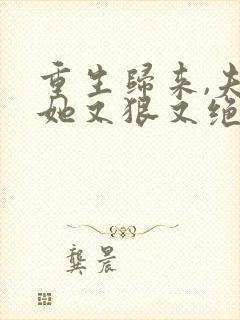 重生歸来,夫
她又狠又绝
龔晨